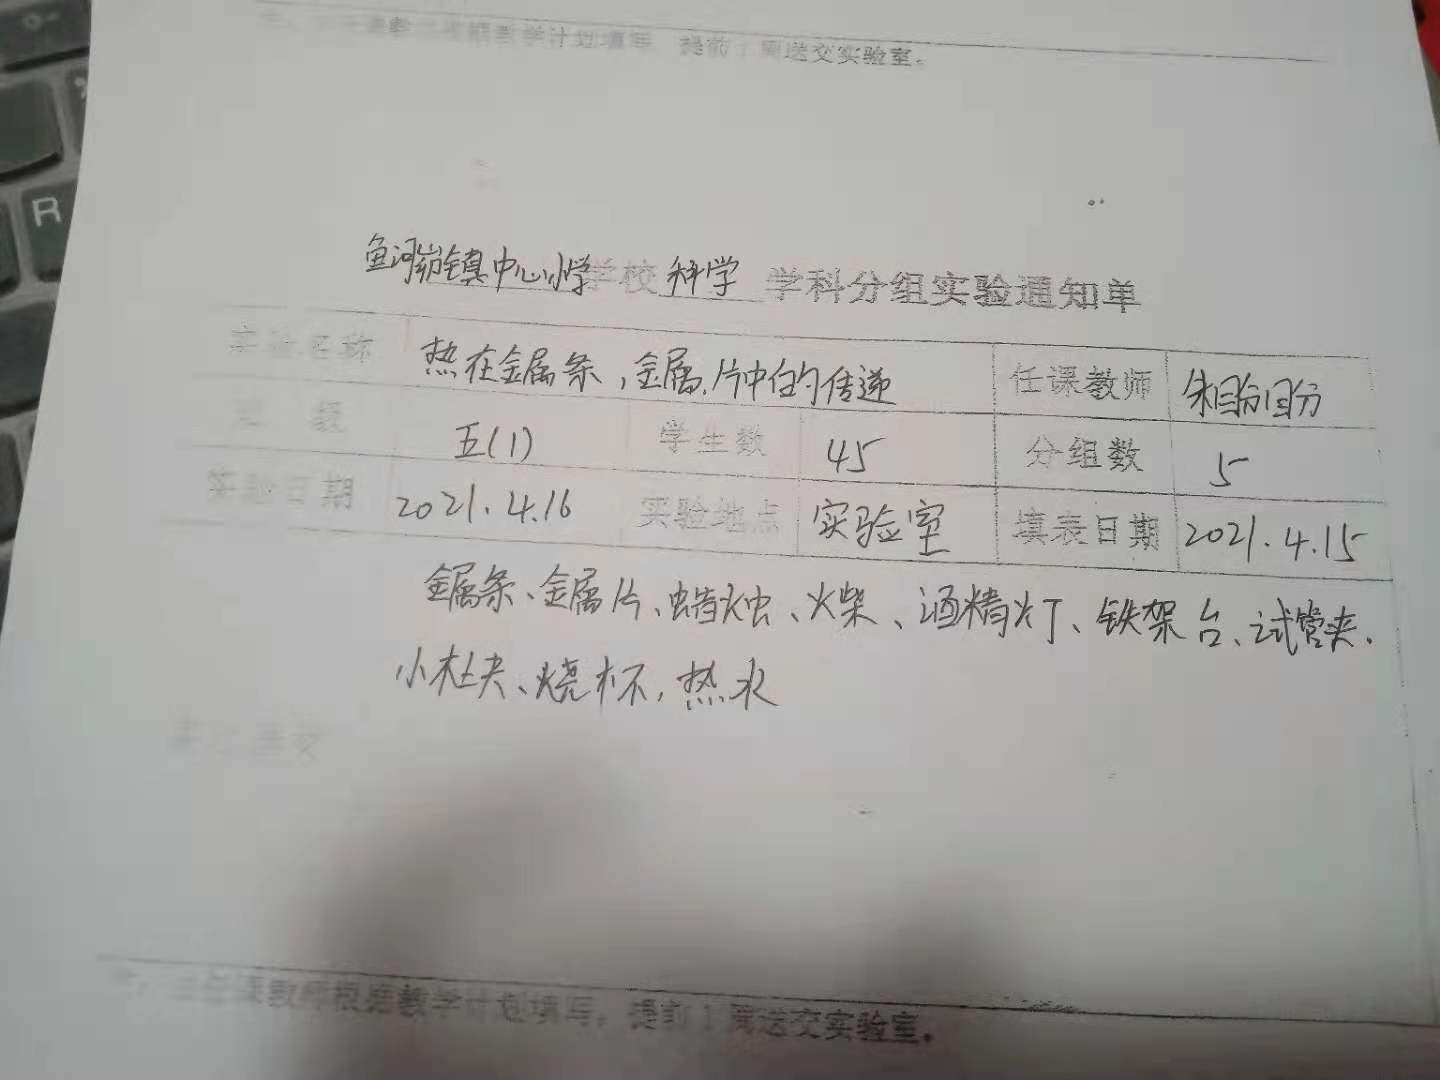 教学计划填写，提前1周送交实验室。
鱼河峁镇中心小学学校科学学科分组实验通知单
实验名称 热在金属条，金属片中的传递 任课教师
班 级 五(1) 学生数 45 分组数 5
实验日期 2021.4.16 实验地点 实验室 填表日期 2021.4.15
金属条、金属片、蜡烛、火柴、酒精灯、铁架台、试管夹.
小木块、烧杯，热水
任课教师根据教学计划填写，提前1周送交实验室。
R